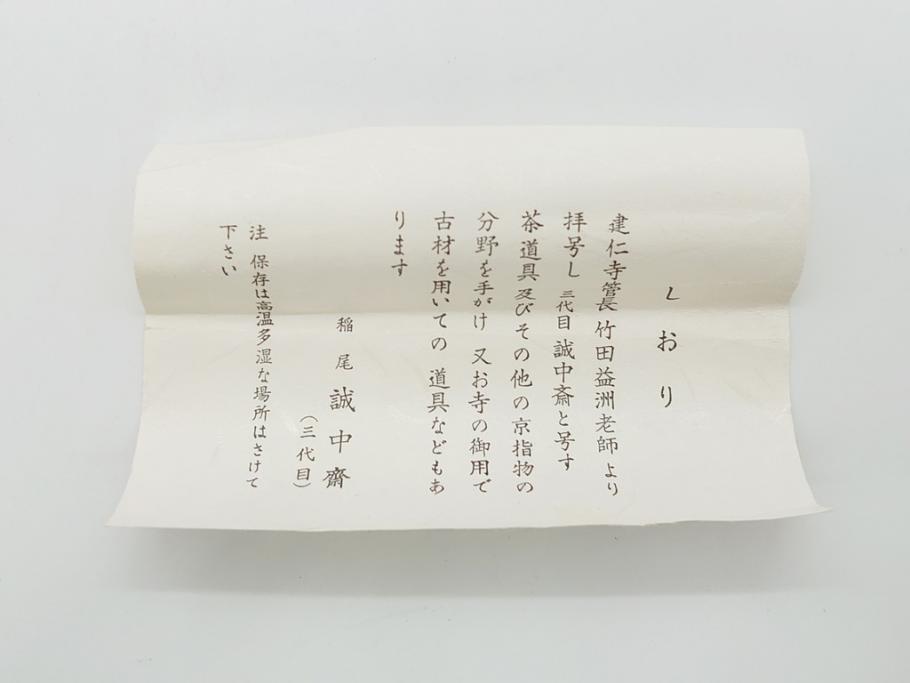 しおり
建仁寺管長 竹田益洲老師より
拝号し 三代目 誠中斎と号す
茶道具及びその他の京指物の
分野を手がけ 又お寺の御用で
古材を用いての 道具などもあ
ります
稲尾 誠中齋
(三代目)
注 保存は高温多湿な場所はさけて
下さい